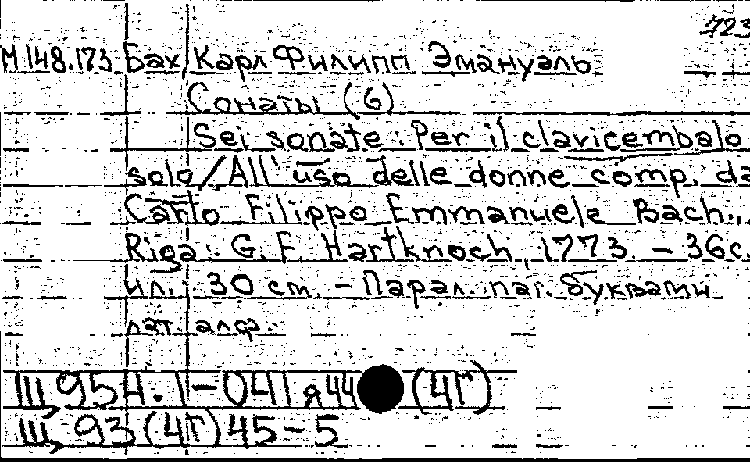 723
М 148.173 Бах, Карл Филипп Эмануэль
Сонаты (6)
Sei sonate : Per il clavicembalo
solo / All' uso delle donne comp. da
Carlo Filippo Emmanuele Bach...
Riga : G. F. Hartknoch, 1773. – 36с.
ил. ; 30 см. – Парал. паг. буквами
лат. алф.
Щ 954.1-041 я44 (4Г)
Щ 93(4Г)45-5